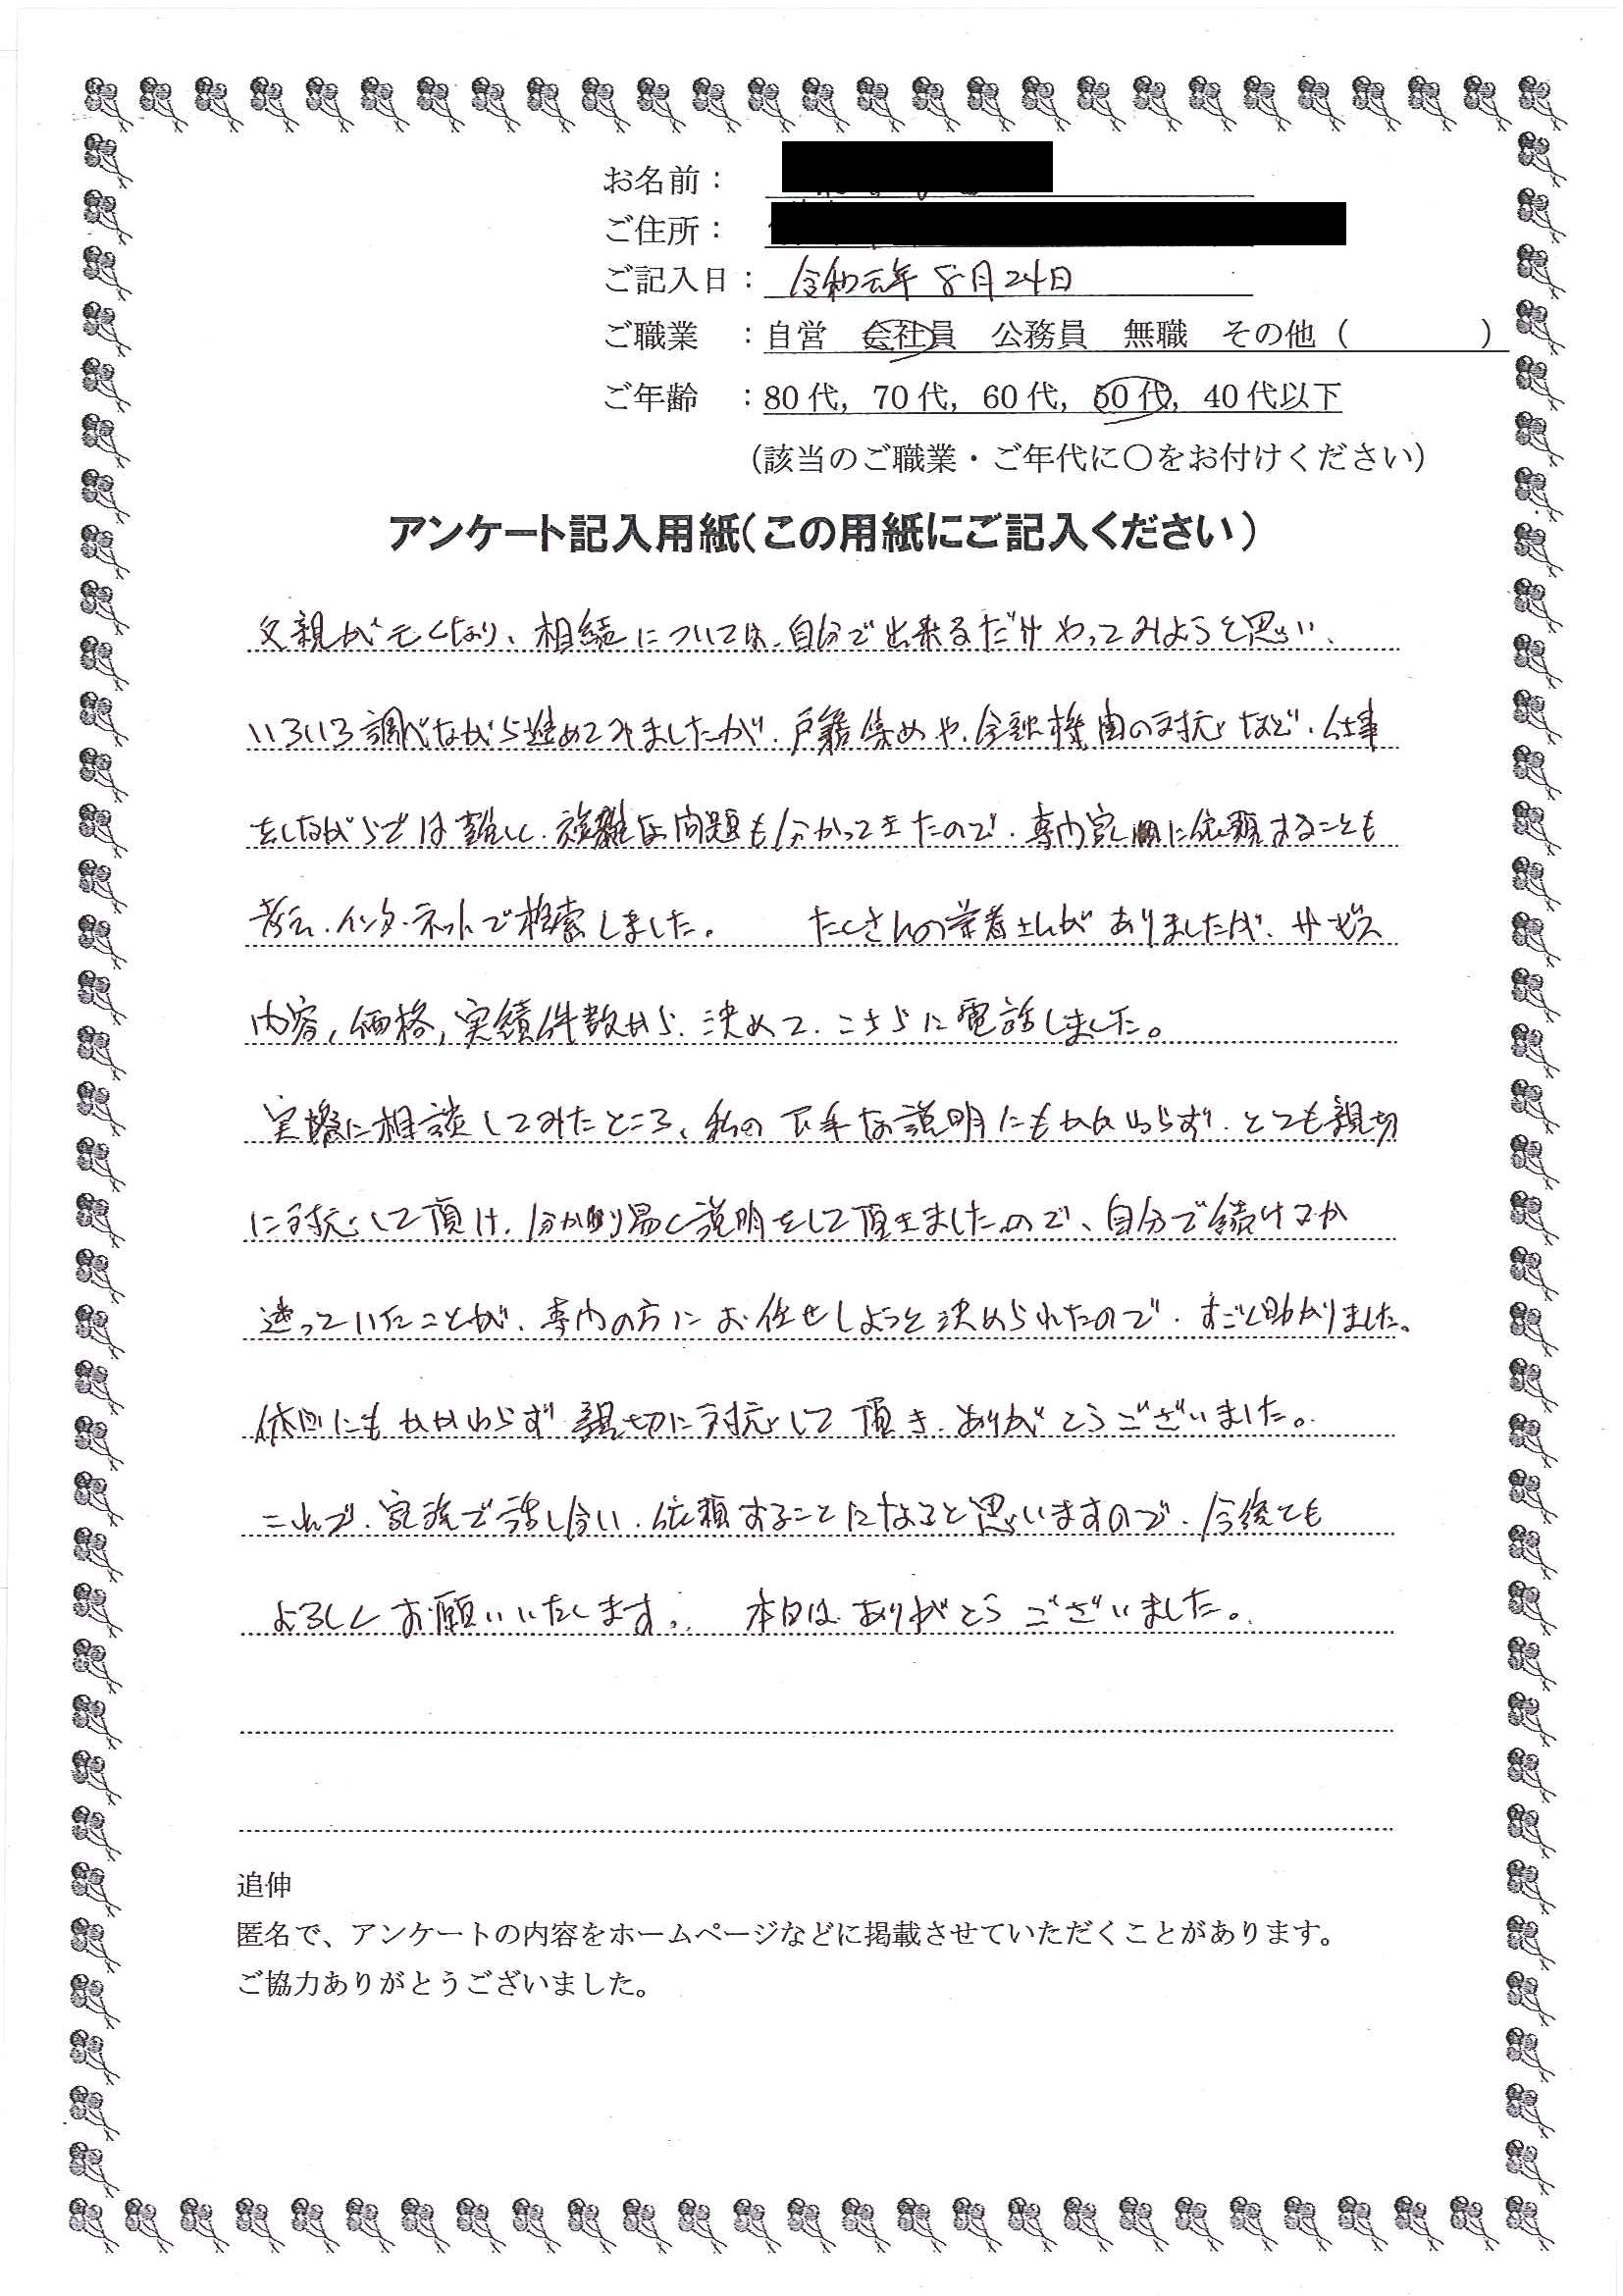 お名前：
ご住所：
ご記入日：令和元年8月24日
ご職業　：自営　会社員　公務員　無職　その他（　　　　）
ご年齢　：80代，70代，60代，50代，40代以下
（該当のご職業・ご年代に〇をお付けください）
アンケート記入用紙（この用紙にご記入ください）
父親が亡くなり、相続については、自分で出来るだけやってみようと思い、
いろいろ調べながら進めてみましたが、戸籍集めや、金融機関の対応など、仕事
をしながらでは難しく、複雑な問題も分かってきたので、専門家に依頼することも
考え、インターネットで検索しました。　たくさんの業者さんがありましたが、サービス
内容，価格，実績件数から、決めて、こちらに電話しました。
実際に相談してみたところ、私の下手な説明にもかかわらず、とても親切
に対応して頂け、分かり易く説明をして頂きましたので、自分で続けるか
迷っていたことが、専門の方にお任せしようと決められたので、すごく助かりました。
休日にもかかわらず親切に対応して頂き、ありがとうございました。
これで、家族で話し合い、依頼することになると思いますので、今後とも
よろしくお願いいたします。　本日はありがとうございました。
追伸
匿名で、アンケートの内容をホームページなどに掲載させていただくことがあります。
ご協力ありがとうございました。